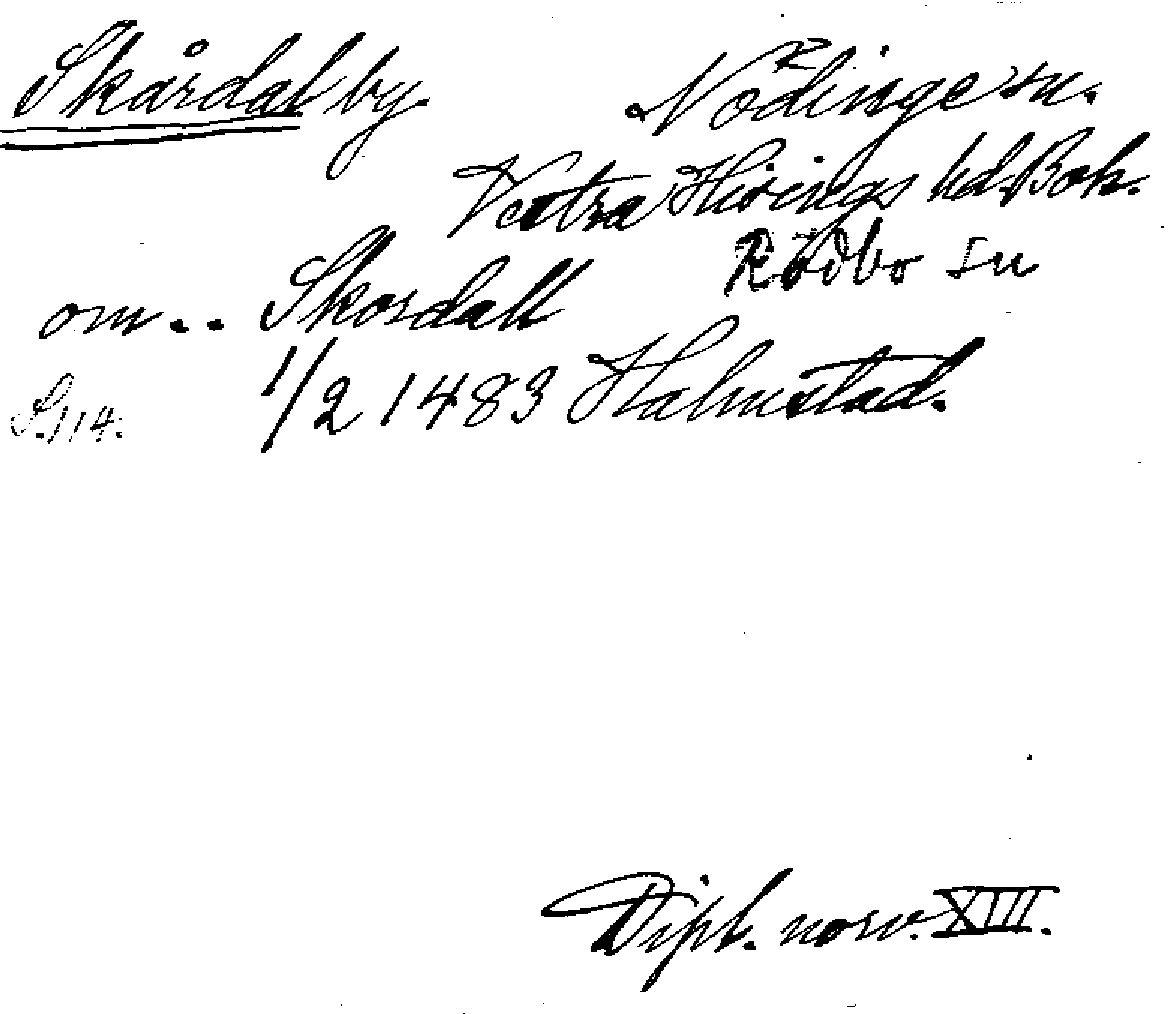 Skårdal by. Nödinge sn.
Vestra Hisings hd. Boh.
Rödbo sn
om.. Skordall
S. 114. 1/2 1483 Halmstad.
Dipl. norv. XIII.